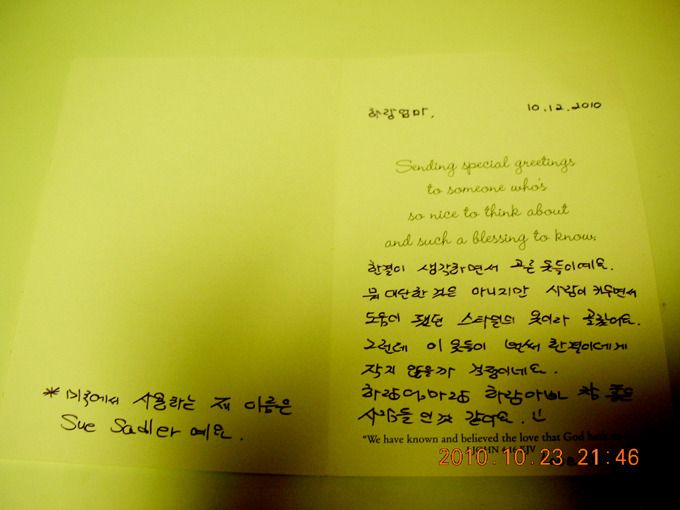 하랑엄마.
10.12.2010
Sending special greetings
to someone who's
so nice to think about
and such a blessing to know.
한결이 생각하면서 고른 옷들이예요.
뭐 대단한 것은 아니지만 사람이 키우면서
도움이 됐던 스타일의 옷이라 골랐어요.
그런데 이 옷들이 벌써 한결이에게
작지 않을까 걱정이네요.
하랑엄마랑 하랑아빠 참 좋은
사람들 인것 같아요.
"We have known and believed the love that God hath
I JOHN 4:16 KJV
* 미국에서 사용하는 제 이름은
Sue Sadler 예요.
2010.10.23 21:46